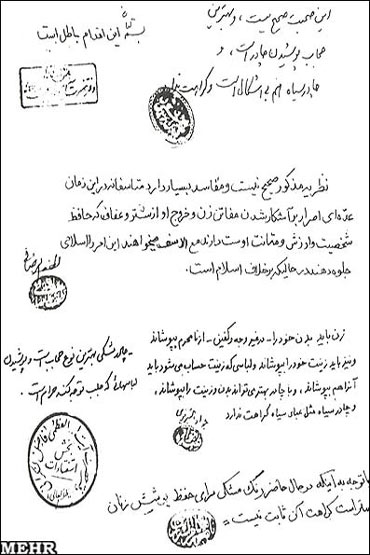 این صحبت صحیح نیست، و بهترین
حجاب پوشیدن چادر است، و
چادر سیاه هم بی اشکال است و کراهت ندارد
بسمه تعالی این اقدام باطل است
نظریه مذکور صحیح نیست و مفاسد بسیار دارد متأسفانه در این زمان
عده‌ای اصرار بر آشکار شدن مفاتن زن و خروج او از ستر و عفاف که حافظ
شخصیت و ارزش و متانت اوست دارند مع الاسف میخواهند این امر را اسلامی
جلوه دهند در حالیکه بر خلاف اسلام است.
زن باید بدن خود را - در غیر وجه و کفین - از نامحرم بپوشاند
و نیز باید زینت خود را بپوشاند و لباسی که زینت حساب می‌شود باید
آنرا هم بپوشاند، و با چادر بهتر می‌تواند بدن و زینت را بپوشاند،
و چادر سیاه مثل عبای سیاه کراهت ندارد
- چادر مشکی بهترین نوع حجاب است و پوشیدن
لباسهائی که جلب توجه کند حرام است.
با توجه به اینکه در حال حاضر رنگ مشکی برای حفظ پوشش زنان
است کراهت آن ثابت نیست
MEHR